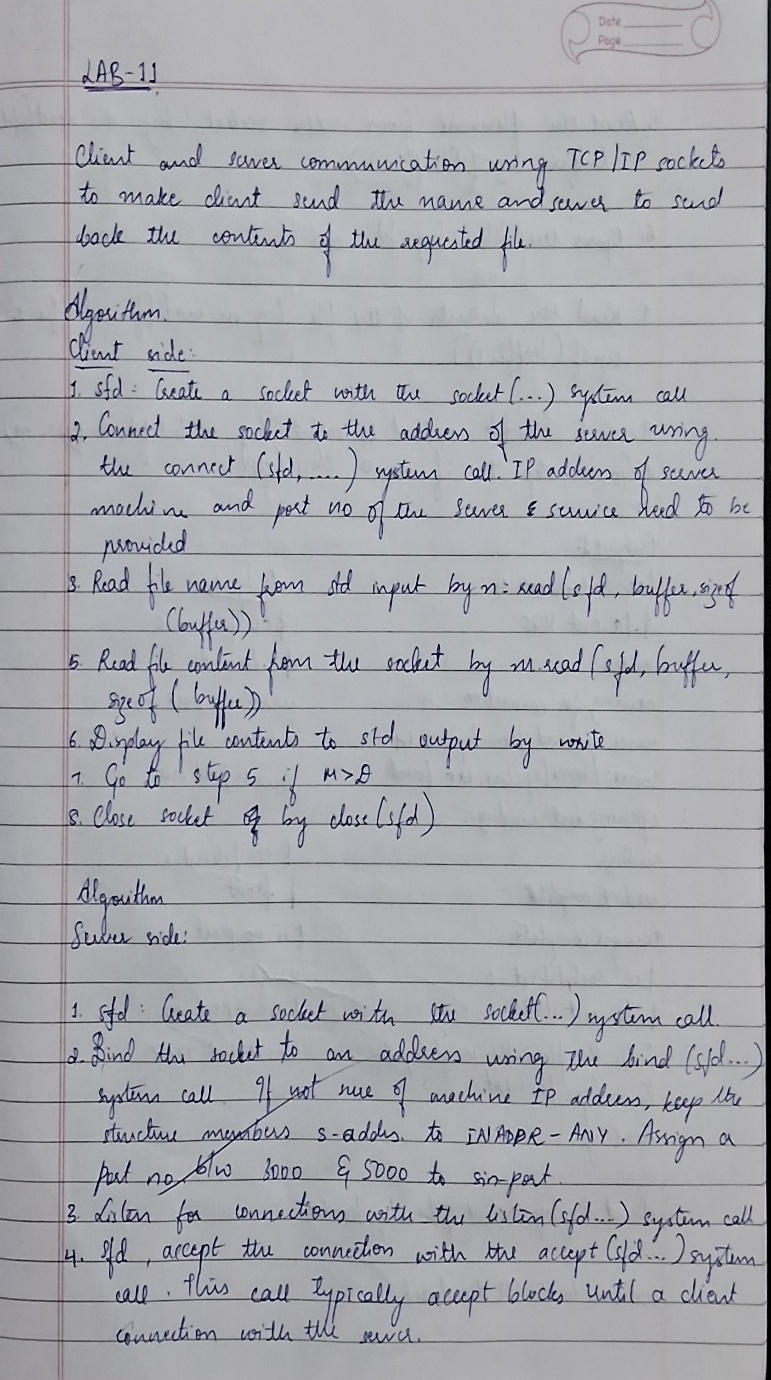 Date
Page
LAB-11
Client and server communication using TCP/IP sockets
to make client send the name and server to send
back the contents of the requested file.
Algorithm.
Client side:
1. sfd: Create a socket with the socket(...) system call
2. Connect the socket to the address of the server using
the connect (sfd, ....) system call. IP address of server
machine and port no of the server & service need to be
provided
3. Read file name from std input by n=read(sfd, buffer, sizeof
(buffer))
5. Read file content from the socket by m read (sfd, buffer,
sizeof (buffer))
6. Display file contents to std output by write
7. Go to step 5 if m>0
8. Close socket by close(sfd)
Algorithm
Server side:
1. sfd: Create a socket with the socket(...) system call.
2. Bind the socket to an address using the bind (sfd...)
system call If not sure of machine IP address, keep the
structure members s-addrs. to INADDR-ANY. Assign a
port no b/w 3000 & 5000 to sin-port.
3. Listen for connections with the listen(sfd...) system call
4. Sfd, accept the connection with the accept (sfd...) system
call. This call typically accept blocks until a client
connection with the server.